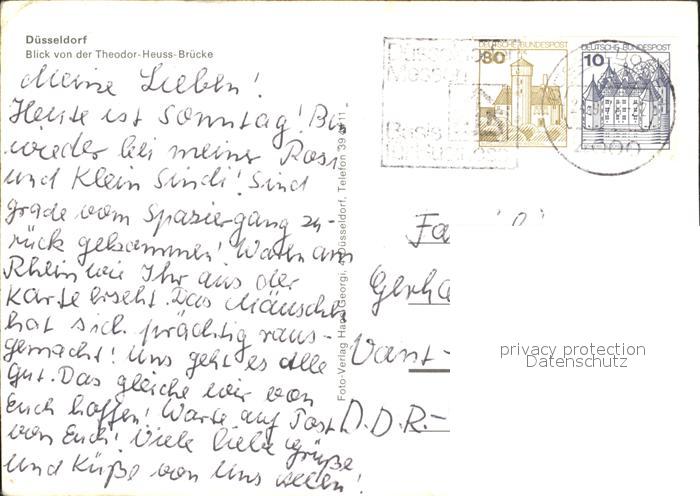 Düsseldorf
Blick von der Theodor-Heuss-Brücke
Meine Lieben!
Heute ist Sonntag! Bin
wieder bei meiner Rosi
und Klein Sindi! Sind
grade vom Spaziergang zu-
rück gekommen! Waren am
Rhein wie Ihr aus der
Karte erseht. Das Mäuschen
hat sich prächtig raus-
gemacht! Uns geht es alle
Gut. Das gleiche wir von
Euch hoffen! Warte auf Post
von Euch! Viele liebe Grüße
und Küße von Uns allen!
Foto-Verlag Hans Georgi, Düsseldorf, Telefon 39 11
Düsseldorfer
Messen
Basis
80
DEUTSCHE BUNDESPOST
10
DEUTSCHE BUNDESPOST
4000
Fa
Gerha
Vant-
D.D.R.-
privacy protection
Datenschutz